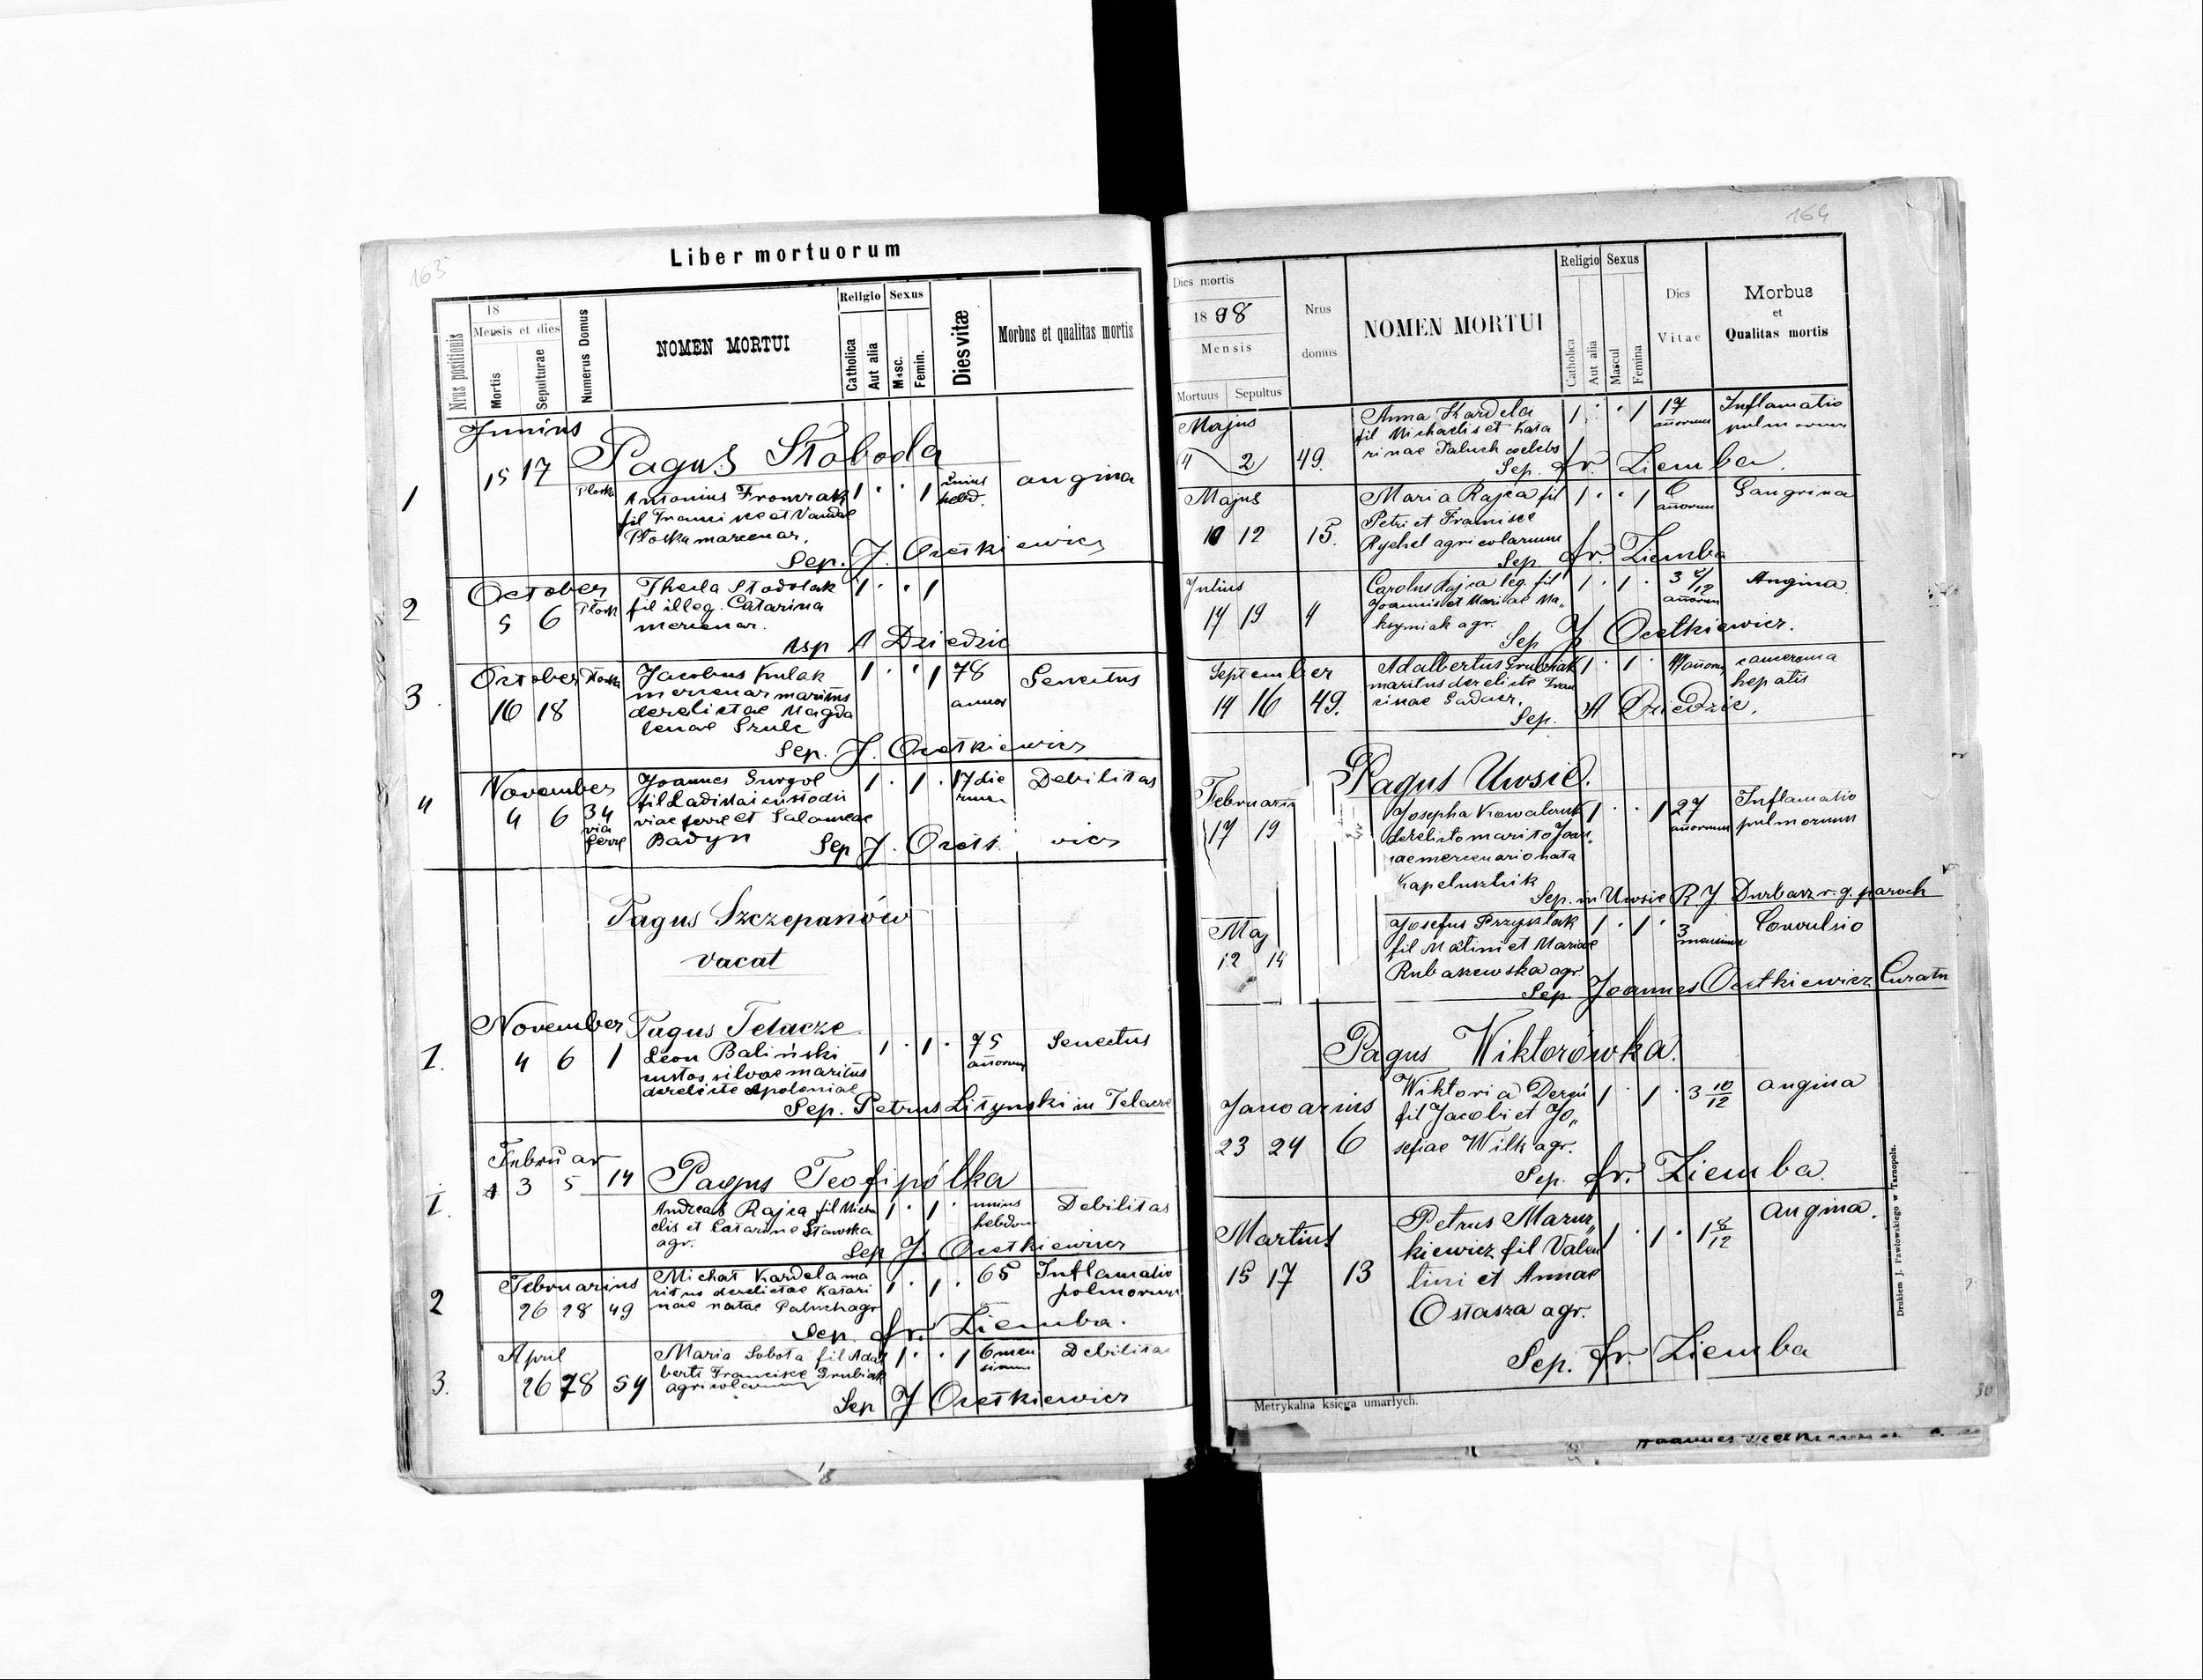 163
Liber mortuorum
Nrus positionis
18
Mensis et dies
Mortis
Sepulturae
Numerus Domus
NOMEN MORTUI
Religio
Catholica
Aut alia
Sexus
Masc.
Femin.
Dies vitæ
Morbus et qualitas mortis
Junius
Pagus Słoboda
1 15 17 Płosk Antonius Fronczak 1 · · 1 unius hebd. angina
fil Francisce et Vandae
Płoska mercenar.
Sep. J. Ocetkiewicz
October
2 5 6 Płosk Thecla Stodolak 1 · · 1
fil illeg. Catarina
mercenar.
Asp A Dziedzic
October
3 16 18 Płoska Jacobus Kulak 1 · · 1 78 annor Senectus
mercenar maritus
derelictae Magda
lenae Szulc
Sep. J. Ocetkiewicz
November
4 4 6 34 via ferre Joannes Gurgol 1 · 1 · 17 die rum Debilitas
fil Ladislai custodis
viae ferre et Salomeae
Badyn
Sep J. Ocetkiewicz
Pagus Szczepanów
vacat
November
Pagus Telacze
1. 4 6 1 Leon Baliński 1 · 1 · 75 añorum Senectus
custos silvae maritus
derelicte Apoloniae
Sep. Petrus Lityński in Telacze
Februar
1. 3 5 14 Pagus Teofipólka
Andreas Rajca fil Micha 1 · 1 · unius hebdom Debilitas
elis et Catarine Stawska
agr.
Sep J. Ocetkiewicz
Februarius
2 26 28 49 Michał Kardela ma 1 · 1 · 65 Inflamatio polmorum
ritus derelictae Katari
nae natae Paluch agr
Sep. fr. Ziemba.
April
3. 26 28 54 Maria Sobota fil Adal 1 · · 1 6 men sium Debilitas
berti Francisce Grubiak
agricolarum
Sep J Ocetkiewicz
164
Dies mortis
1898
Mensis
Mortuus
Sepultus
Nrus domus
NOMEN MORTUI
Religio
Catholica
Aut alia
Sexus
Mascul
Femina
Dies Vitae
Morbus
et
Qualitas mortis
Majus
4 2 49. Anna Kardela 1 · · 1 17 añorum Inflamatio pulmorum
fil Michaelis et Kata
rinae Paluch coelebs
Sep. fr. Ziemba.
Majus
10 12 15. Maria Rajca fil 1 · · 1 6 añorum Gangrina
Petri et Francisce
Rychel agricolarum
Sep fr. Ziemba
Julius
17 19 4 Carolus Rajca leg. fil 1 · 1 · 3 /12 añorum Angina
Joannis et Mariae Ma„
ksymiak agr.
Sep J Ocetkiewicz.
September
14 16 49. Adalbertus Grubiak 1 · 1 · añorum hepatis
maritus derelicte Fran
cisae
Sep. A Dziedzic.
Pagus Uwsie.
Februarius
17 19 Josepha Kowalczuk 1 · · 1 27 añorum Inflamatio pulmorum
derelicto marito Joan„
nae mercenario nata
Kapelusznik
Sep. in Uwsie R. J. Durbasz r. g. paroch
Maj
12 14 Josefus Przyszlak 1 · 1 · 3 mensium Convulsio
fil Matini et Mariae
Rubaszewska agr.
Sep. Joannes Ocetkiewicz Curatu
Pagus Wiktorówka.
Januarius
23 24 6 Wiktoria Derń 1 · 1 · 3 10/12 angina
fil Jacobi et Jo„
sefiae Wilk agr.
Sep. fr. Ziemba.
Martius
15 17 13 Petrus Mazur„ 1 · 1 · 1 8/12 angina.
kiewicz fil Valen
tini et Annae
Ostasza agr.
Sep. fr. Ziemba
Metrykalna księga umarłych.
Drukiem J. Pawłowskiego w Tarnopolu.
30